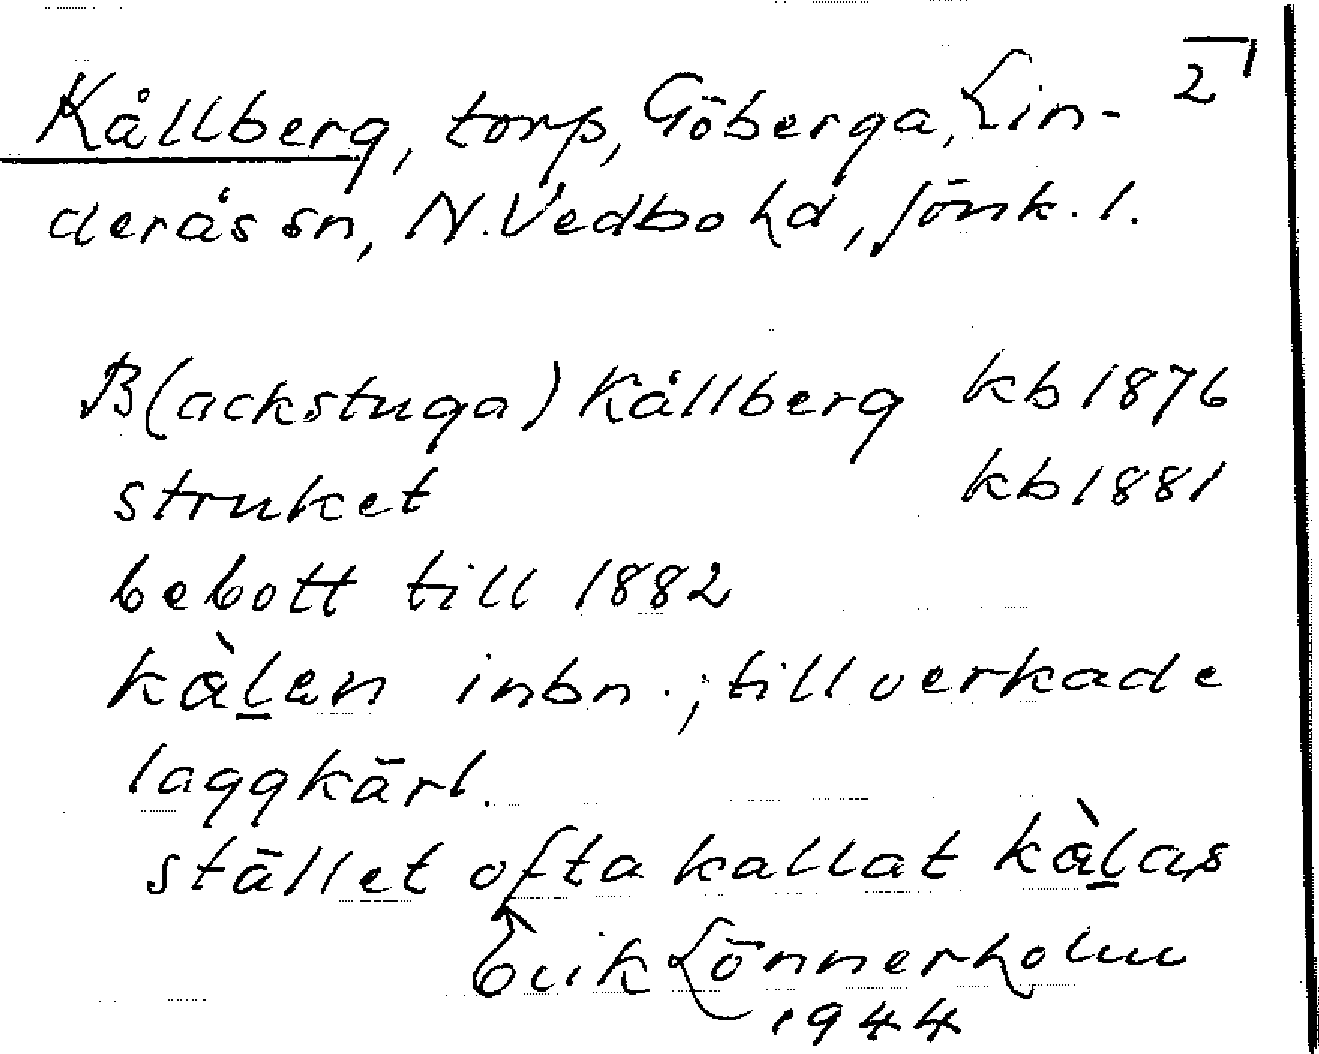 Kållberg, torp, Göberga, Lin- 2
derås sn, N. Vedbo hd, Jönk. l.
B(ackstuga) Kållberg kb 1876
struket kb 1881
bebott till 1882
kàlen inbn.; tillverkade
laggkärl.
stället ofta kallat kàlas
Erik Lönnerholm
1944